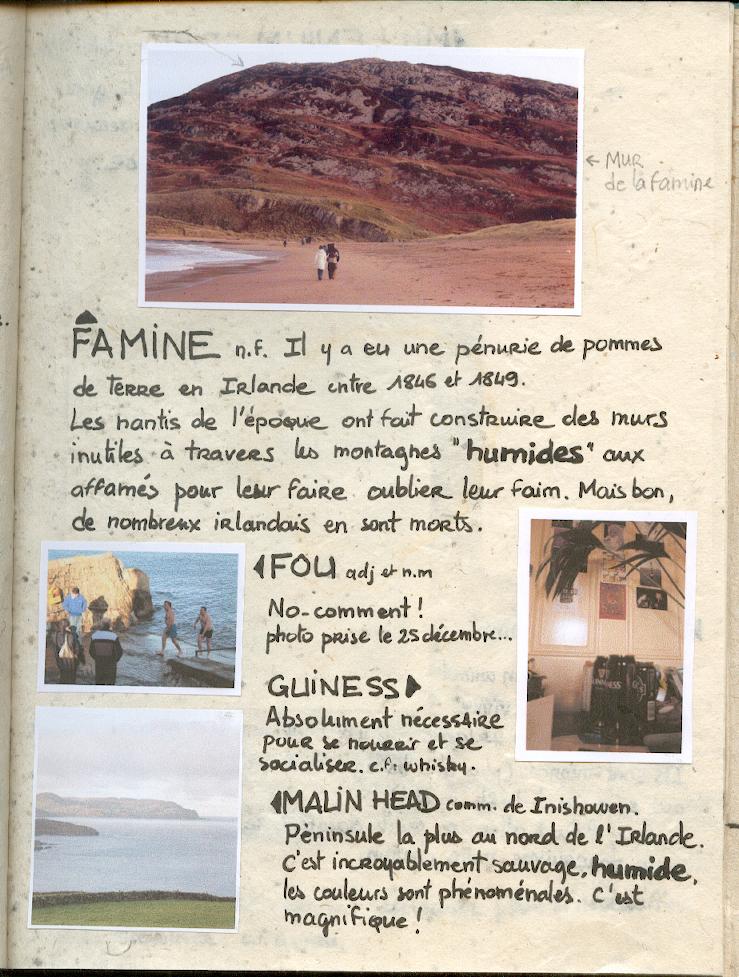 ← MUR
de la famine
FAMINE n.f. Il y a eu une pénurie de pommes
de terre en Irlande entre 1846 et 1849.
Les nantis de l'époque ont fait construire des murs
inutiles à travers les montagnes "humides" aux
affamés pour leur faire oublier leur faim. Mais bon,
de nombreux irlandais en sont morts.
FOU adj et n.m
No-comment!
photo prise le 25 décembre...
GUINESS
Absolument nécessaire
pour se nourrir et se
socialiser. c.f. whisky.
GUINNESS
MALIN HEAD comm. de Inishowen.
Péninsule la plus au nord de l'Irlande.
C'est incroyablement sauvage, humide,
les couleurs sont phénoménales. C'est
magnifique!